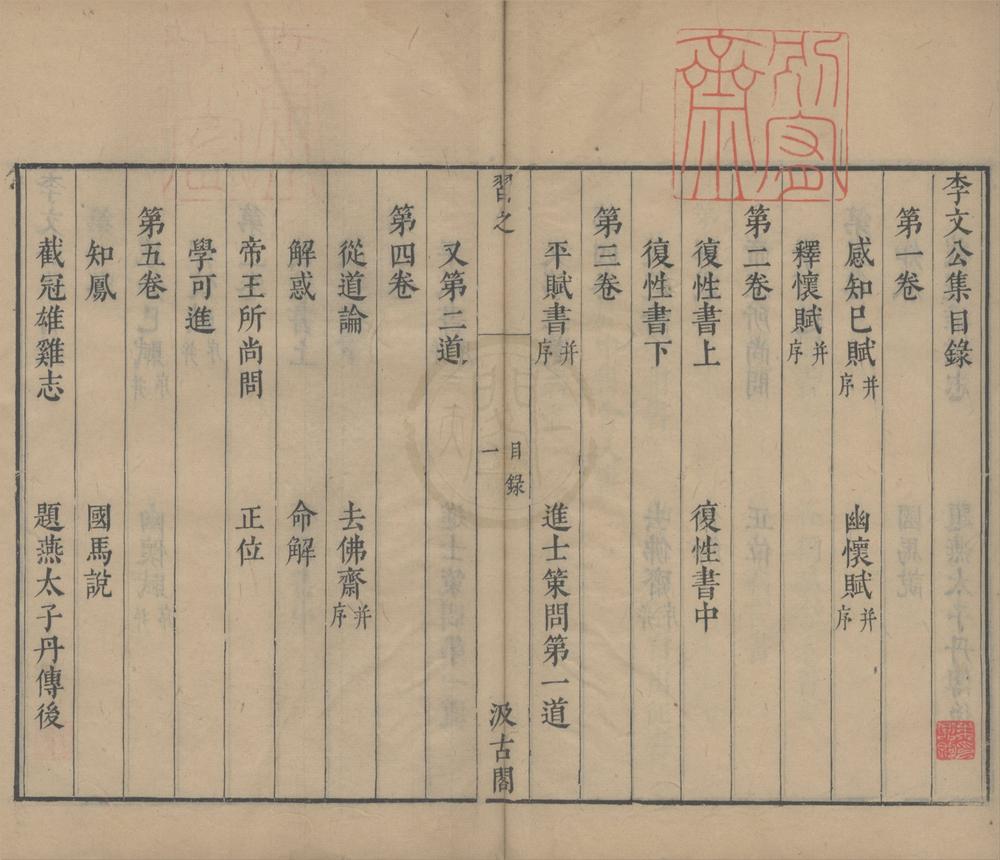 李文公集目錄
第一卷
感知己賦并序 幽懷賦并序
釋懷賦并序
第二卷
復性書上 復性書中
復性書下
第三卷
平賦書并序 進士策問第一道
習之 目錄 一 汲古閣
又第二道
第四卷
從道論 去佛齋并序
解惑 命解
帝王所尚問 正位
學可進
第五卷
知鳳 國馬說
截冠雄雞志 題燕太子丹傳後